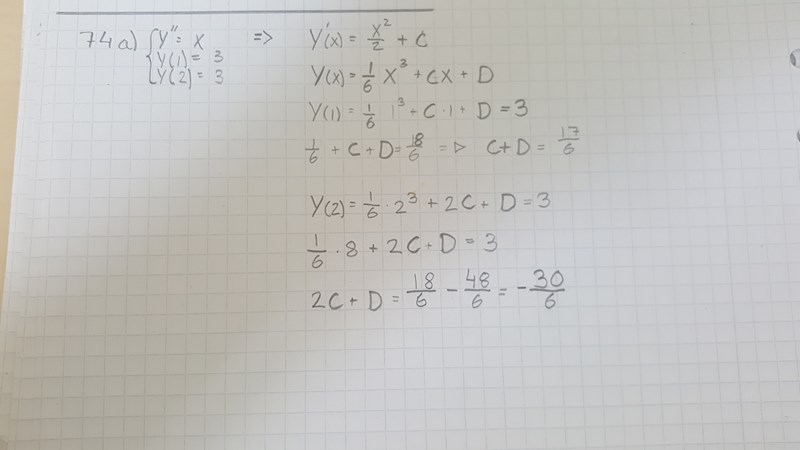 74a) { Y'' = X => Y'(x) = x²/2 + C
Y(1) = 3
Y(2) = 3
Y(x) = 1/6 x³ + Cx + D
Y(1) = 1/6 1³ + C·1 + D = 3
1/6 + C + D = 18/6 => C + D = 17/6
Y(2) = 1/6 · 2³ + 2C + D = 3
1/6 · 8 + 2C + D = 3
2C + D = 18/6 - 48/6 = -30/6